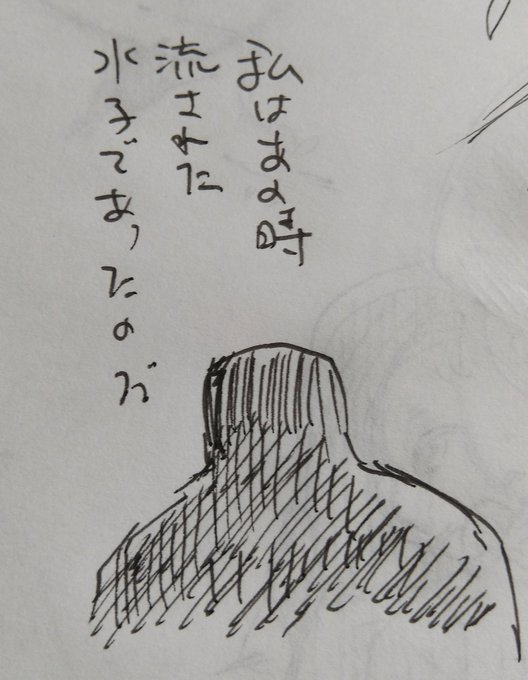 私はあの時
流された
水子であったのだ